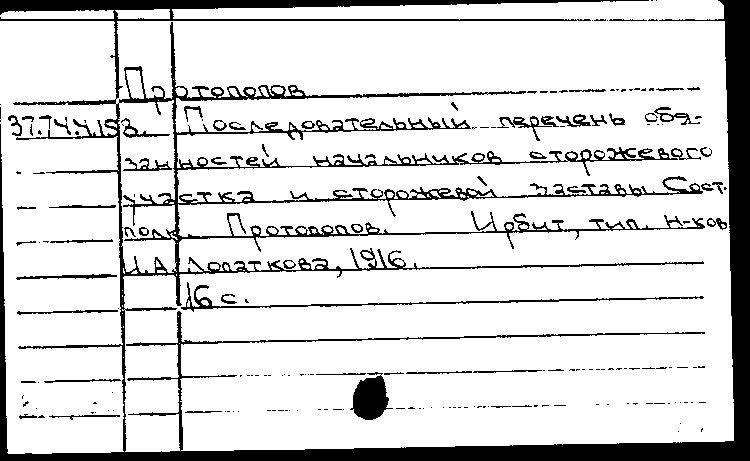 Протопопов
37.74.4.153. Последовательный перечень обя-
занностей начальников сторожевого
участка и сторожевой заставы. Сост.
полк. Протопопов. Ирбит, тип. Н-ков
И.А. Лопаткова, 1916.
16 с.